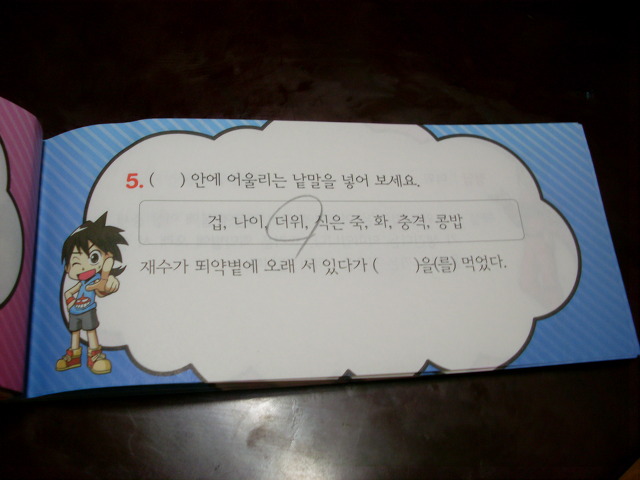 5. (   ) 안에 어울리는 낱말을 넣어 보세요.
겁, 나이, 더위, 식은 죽, 화, 충격, 콩밥
재수가 뙤약볕에 오래 서 있다가 (   )을(를) 먹었다.